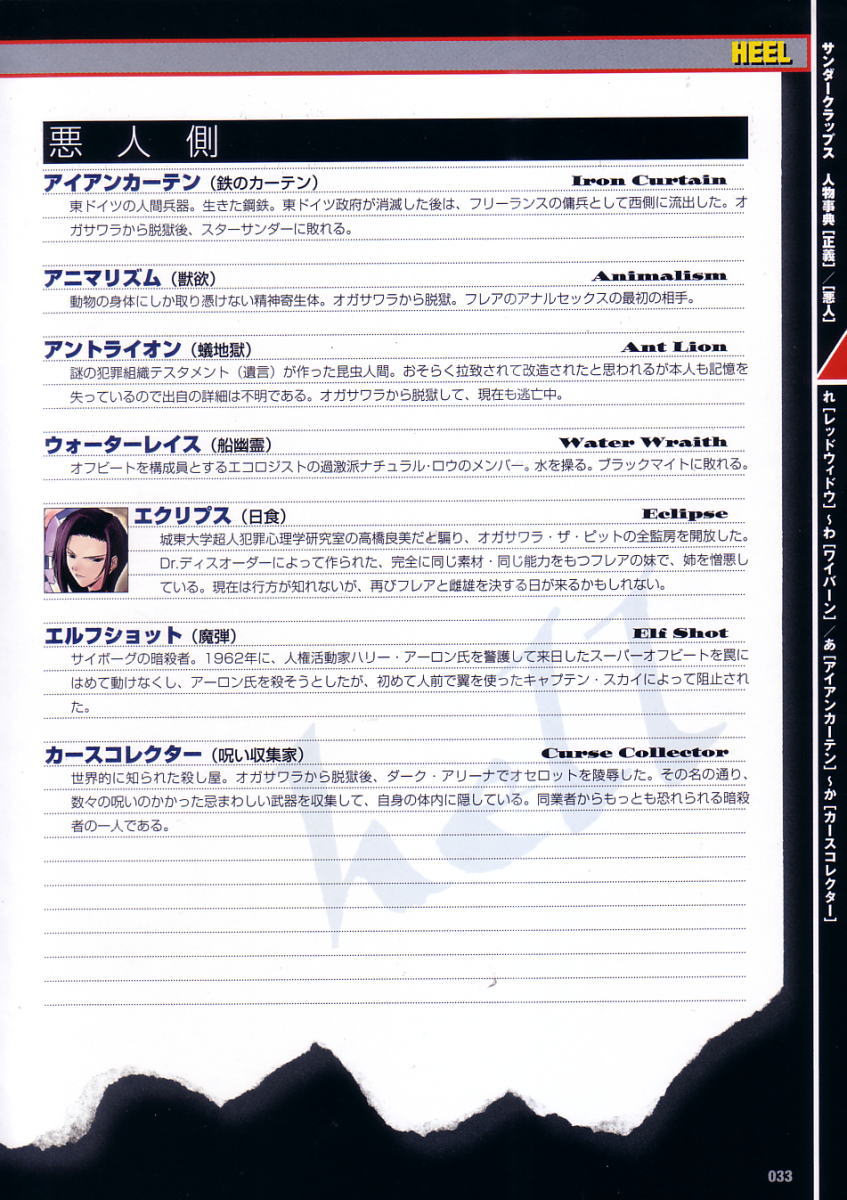 HEEL
悪人側
アイアンカーテン（鉄のカーテン） Iron Curtain
東ドイツの人間兵器。生きた鋼鉄。東ドイツ政府が消滅した後は、フリーランスの傭兵として西側に流出した。オ
ガサワラから脱獄後、スターサンダーに敗れる。
アニマリズム（獣欲） Animalism
動物の身体にしか取り憑けない精神寄生体。オガサワラから脱獄。フレアのアナルセックスの最初の相手。
アントライオン（蟻地獄） Ant Lion
謎の犯罪組織テスタメント（遺言）が作った昆虫人間。おそらく拉致されて改造されたと思われるが本人も記憶を
失っているので出自の詳細は不明である。オガサワラから脱獄して、現在も逃亡中。
ウォーターレイス（船幽霊） Water Wraith
オフビートを構成員とするエコロジストの過激派ナチュラル・ロウのメンバー。水を操る。ブラックマイトに敗れる。
エクリプス（日食） Eclipse
城東大学超人犯罪心理学研究室の高橋良美だと騙り、オガサワラ・ザ・ピットの全監房を開放した。
Dr.ディスオーダーによって作られた、完全に同じ素材・同じ能力をもつフレアの妹で、姉を憎悪し
ている。現在は行方が知れないが、再びフレアと雌雄を決する日が来るかもしれない。
エルフショット（魔弾） Elf Shot
サイボーグの暗殺者。1962年に、人権活動家ハリー・アーロン氏を警護して来日したスーパーオフビートを罠に
はめて動けなくし、アーロン氏を殺そうとしたが、初めて人前で翼を使ったキャプテン・スカイによって阻止され
た。
カースコレクター（呪い収集家） Curse Collector
世界的に知られた殺し屋。オガサワラから脱獄後、ダーク・アリーナでオセロットを陵辱した。その名の通り、
数々の呪いのかかった忌まわしい武器を収集して、自身の体内に隠している。同業者からもっとも恐れられる暗殺
者の一人である。
heel
サンダークラップス 人物事典［正義］／［悪人］
れ［レッドウィドウ］～わ［ワイバーン］／あ［アイアンカーテン］～か［カースコレクター］
033